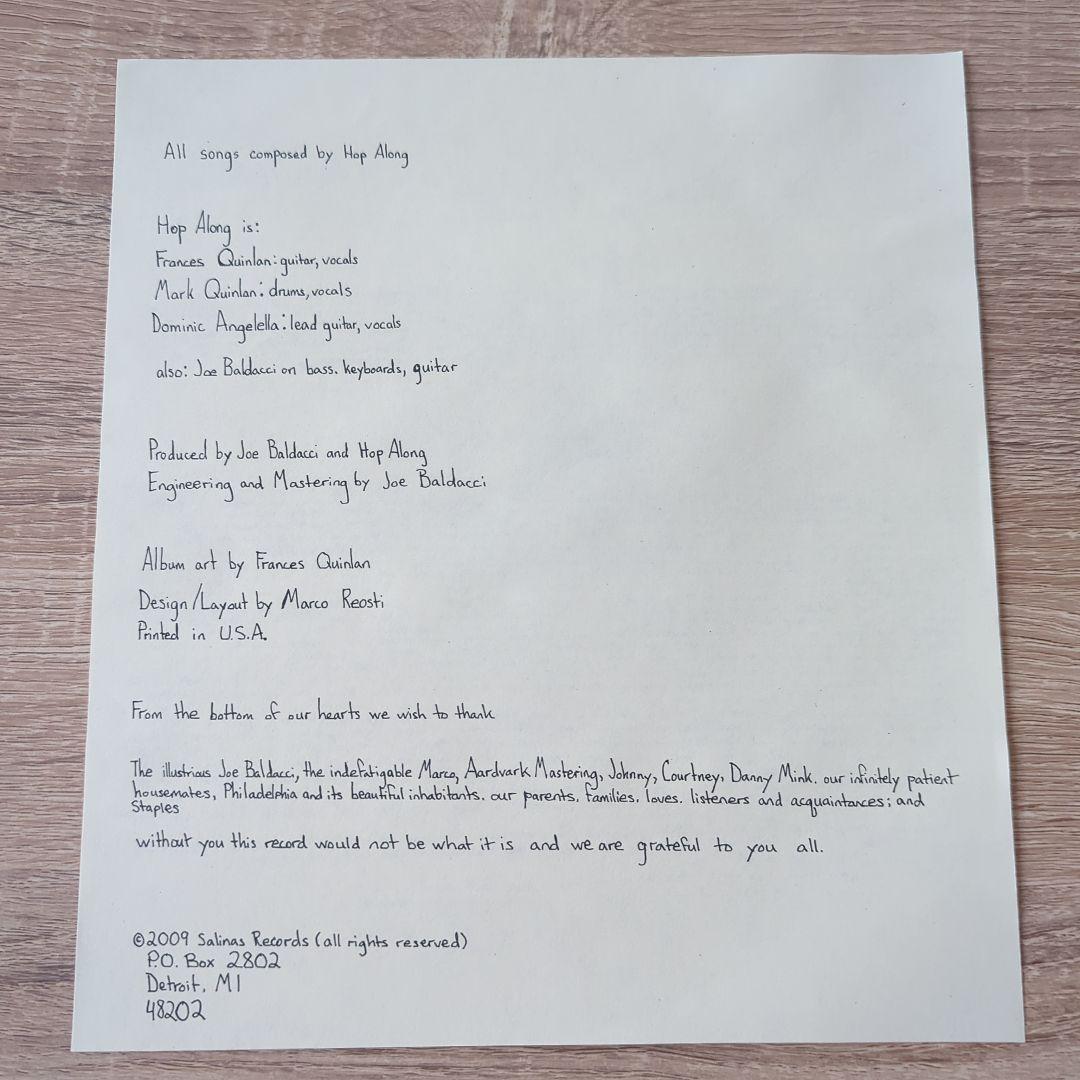 All songs composed by Hop Along
Hop Along is:
Frances Quinlan: guitar, vocals
Mark Quinlan: drums, vocals
Dominic Angelella: lead guitar, vocals
also: Joe Baldacci on bass. keyboards, guitar
Produced by Joe Baldacci and Hop Along
Engineering and Mastering by Joe Baldacci
Album art by Frances Quinlan
Design/Layout by Marco Reosti
Printed in U.S.A.
From the bottom of our hearts we wish to thank
The illustrious Joe Baldacci, the indefatigable Marco, Aardvark Mastering, Johnny, Courtney, Danny Mink. our infinitely patient
housemates, Philadelphia and its beautiful inhabitants. our parents. families. loves. listeners and acquaintances; and
Staples
without you this record would not be what it is and we are grateful to you all.
©2009 Salinas Records (all rights reserved)
P.O. Box 2802
Detroit, MI
48202